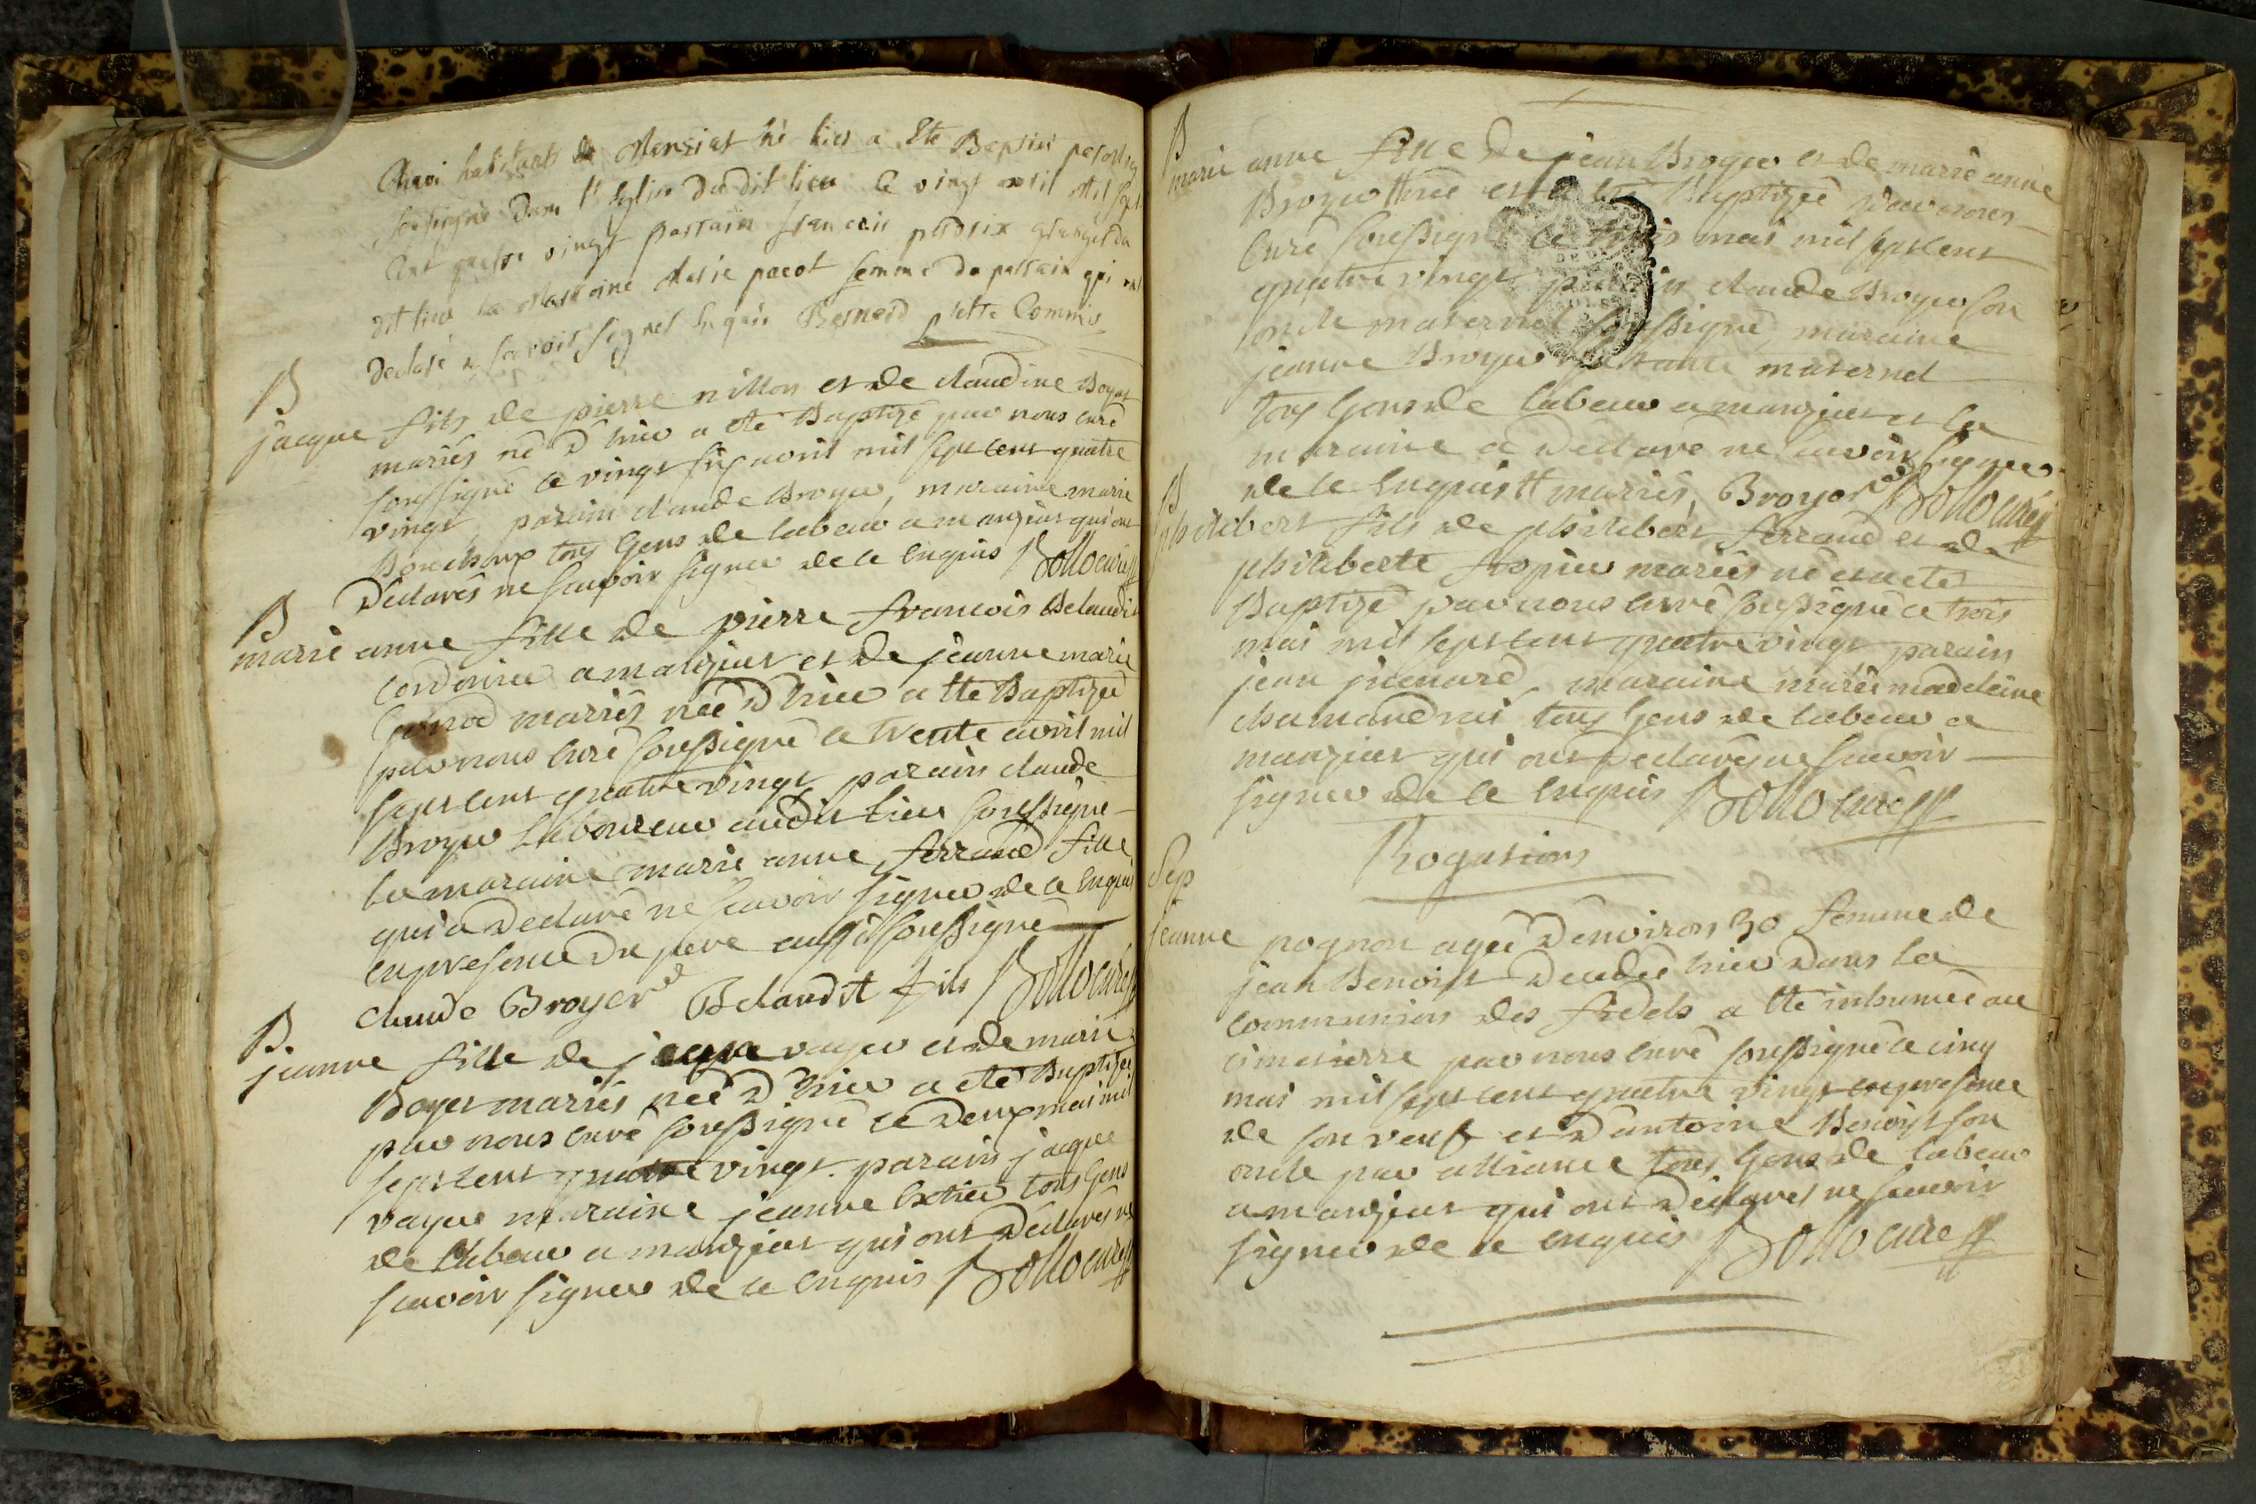 habitants de Manziat né hier a Ete Baptisé par
soussigné Dans l'Eglise dudit lieu le vingt avril Mil Sept
Cent quatre vingt parrain francois perdrix granger du
dit lieu la Marraine Marie pacot femme du parrain qui ont
déclaré ne scavoir signer Enquis Besnard prêtre Commis
B
jacque fils de pierre nillon et de claudine Boyat
mariés né d'hier a été Baptizé par nous curé
soussigné ce vingt six avril mil sept cent quatre
vingt, parain claude Broyer, maraine marie
Bonchoux tous Gens de labeur a manziat qui ont
Declarés ne scavoir signer de ce enquis Bollo curé
B
marie anne fille de pierre francois Belaudit
cordonier a manziat et de jeanne marie
mariés née d'hier a été Baptizée
par nous curé soussigné ce trente avril mil
sept cent quatre vingt parain claude
Broyer laboureur audit lieu soussigné
la maraine marie anne ferrand fille
qui a Declaré ne scavoir signer de ce enquis
en presence du pere aussi soussigné
claude Broyer Belaudit fils Bollo curé
B.
jeanne fille de jaque vayer et de marie
Boyat mariés née d'hier a été Baptizée
par nous curé soussigné ce deux mai mil
sept cent quatre vingt. parain jaque
vayer maraine jeanne tous Gens
de labeur a manziat qui ont Déclarés ne
scavoir signer de ce enquis Bollo curé
B
marie anne fille de jean Broyer et de marie anne
Broyer née et a été Baptizée par nous
Curé soussigné ce trois mai mil sept cent
quatre vingt parain claude Broyer son
oncle maternel soussigné, maraine
jeanne Broyer sa tante maternel
tous Gens de labeur a manziat et la
maraine a Déclaré ne scavoir signer
de ce Enquis # mariés, Broyer Bollo curé
B
philibert fils de philibert ferrand et de
philiberte mariés né et a été
Baptizé par nous curé soussigné ce trois
mai mil sept cent quatre vingt parain
jean maraine marie madeleine
tous Gens de labeur a
manziat qui ont Declarés ne scavoir
signer de ce enquis Bollo curé
Rogations
Sep
jeanne pognon agée d'environ 30 femme de
jean Benoist décédée hier dans la
communion des fidels a été inhumée au
cimetierre par nous curé soussigné ce cinq
mai mil sept cent quatre vingt en presence
de son veuf et d'antoine Benoist son
oncle par alliance tous Gens de labeur
a manziat qui ont déclarés ne scavoir
signer de ce enquis Bollo curé